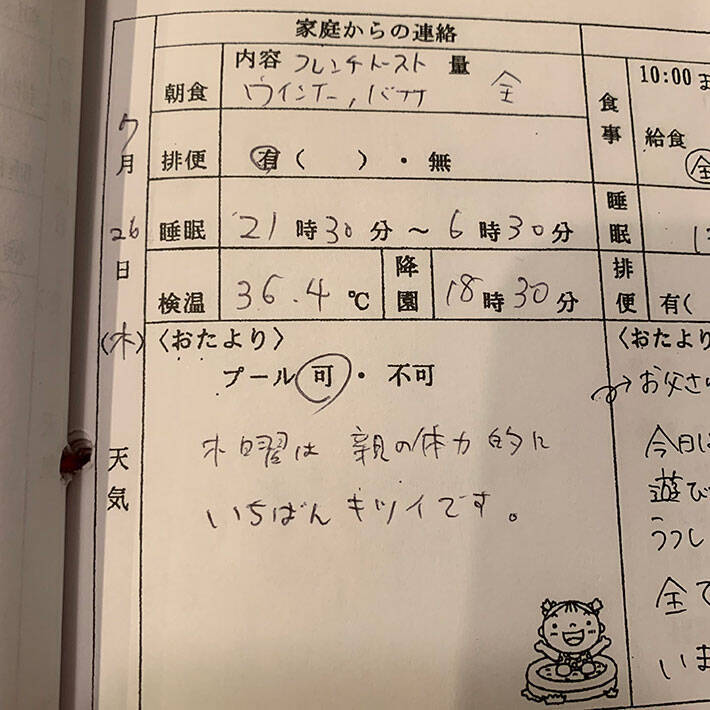 家庭からの連絡
7月26日(木)
天気
朝食 内容 フレンチトースト 量
ウインナー,バナナ 全
排便 有( )・無
睡眠 21時30分〜6時30分
検温 36.4℃ 降園 18時30分
〈おたより〉
プール 可・不可
木曜は 親の体力的に
いちばん キツイです。
食事 10:00
給食
全
睡眠
排便 有(
〈おたより
→お父さ
今日は
遊び
うつし
全て
いま